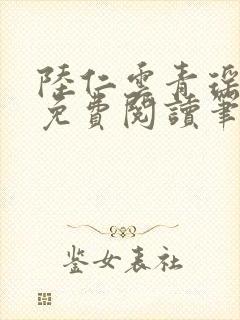 陸仁雲青瑤
免費閱讀筆
鉴女表社